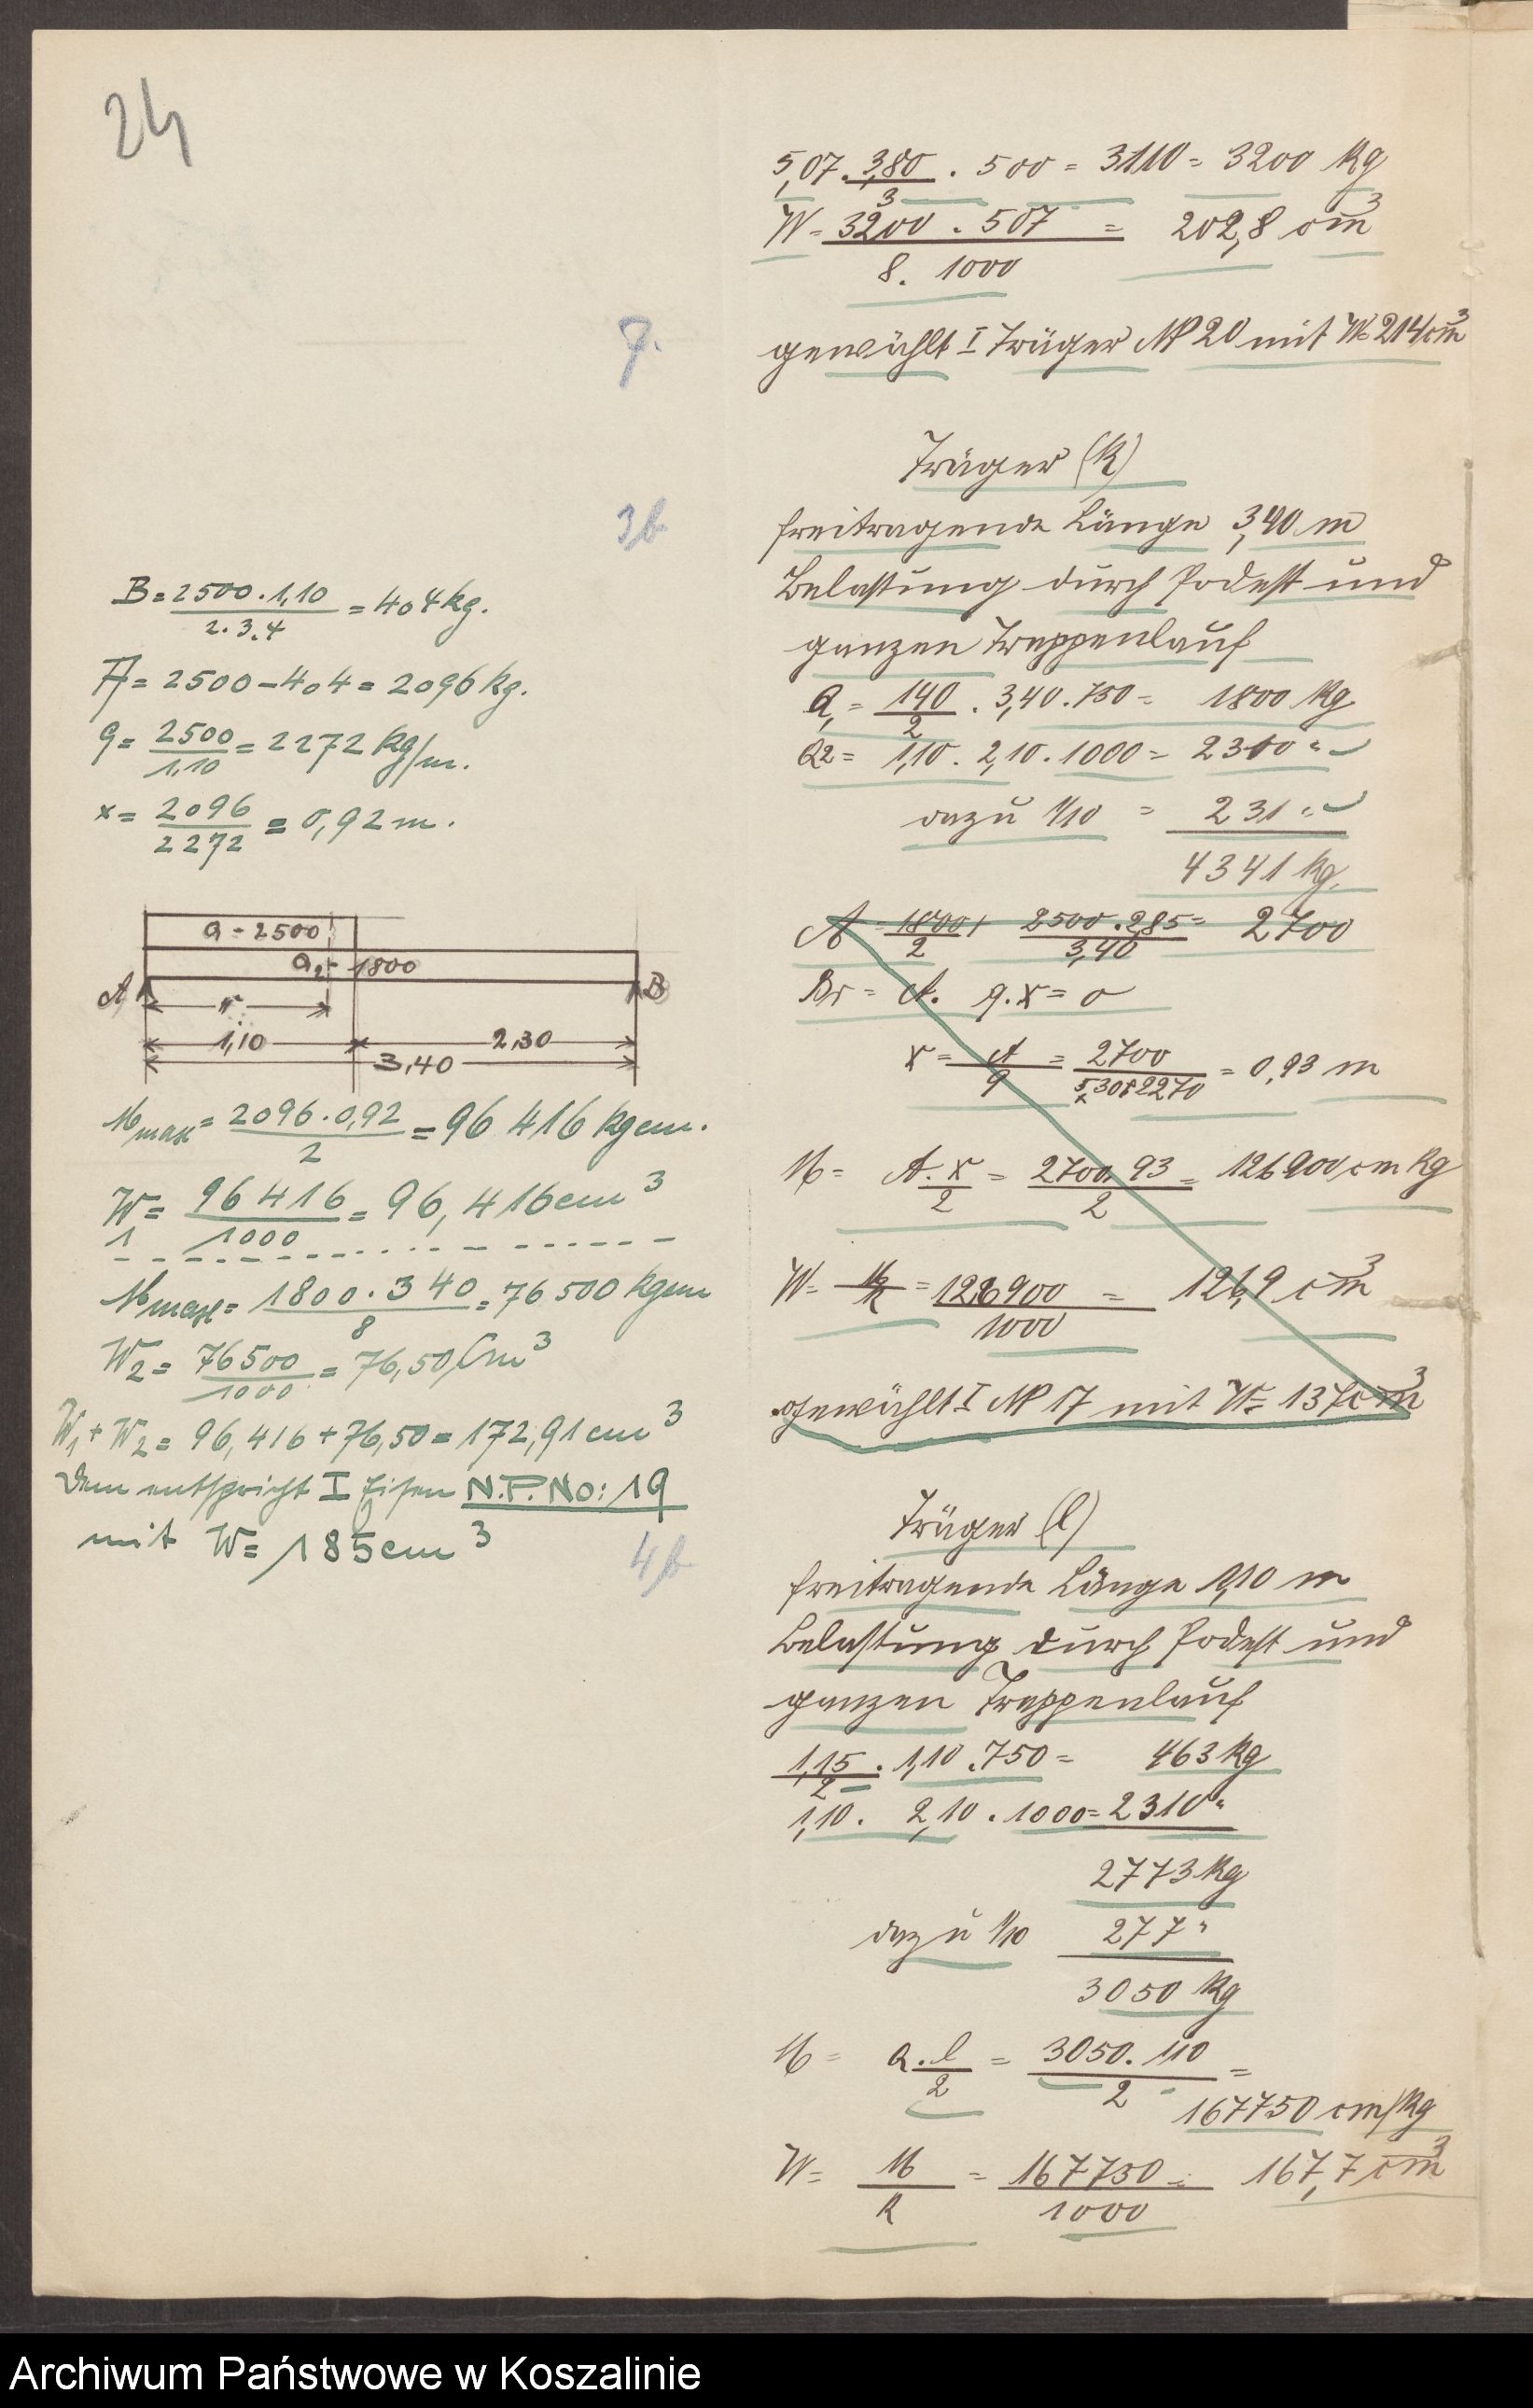 24
5,07 . 3,80/3 . 500 = 3110 = 3200 kg
W = 3200 . 507 / 8 . 1000 = 202,8 cm³
7.
gewählt I Träger NP 20 mit W = 214 cm³
Träger (k)
3b
freitragende Länge 3,40 m
Belastung durch Podest und
ganzen Treppenlauf
Q₁ = 1,40/2 . 3,40 . 750 = 1800 kg
Q2 = 1,10 . 2,10 . 1000 = 2310 "
dazu 1/10 = 231 "
4341 kg.
A = 1800/2 + 2500 . 2,85 / 3,40 = 2700
Br = A . q . x = 0
x = A/q = 2700 / 530+2270 = 0,93 m
M = A . x/2 = 2700 . 93 / 2 = 126900 cmkg
W = M/k = 126900/1000 = 126,9 cm³
gewählt I NP 17 mit W = 137 cm³
B = 2500 . 1,10 / 2 . 3,4 = 404 kg.
A = 2500 – 404 = 2096 kg.
q = 2500/1,10 = 2272 kg/m.
x = 2096/2272 = 0,92 m.
Q = 2500
Q₂ = 1800
A B
x
1,10 2,30
3,40
M max = 2096 . 0,92 / 2 = 96 416 kgcm.
W₁ = 96 416/1000 = 96,416 cm³
M max = 1800 . 340 / 8 = 76 500 kgcm
W₂ = 76500/1000 = 76,50 cm³
W₁ + W₂ = 96,416 + 76,50 = 172,91 cm³
Dem entspricht I Eisen N.P. No: 19
mit W = 185 cm³
4b
Träger (l)
freitragende Länge 1,10 m
Belastung durch Podest und
ganzen Treppenlauf
1,15/2 . 1,10 . 750 = 463 kg
1,10 . 2,10 . 1000 = 2310 "
2773 kg
dazu 1/10 277 "
3050 kg
M = Q . l/2 = 3050 . 110 / 2 =
167750 cm/kg
W = M/k = 167750/1000 = 167,7 cm³
Archiwum Państwowe w Koszalinie